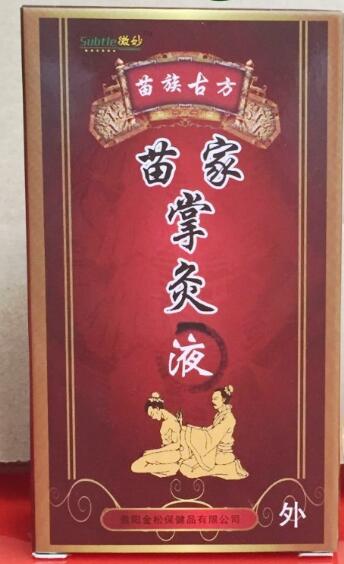 Subtle微妙
苗族古方
苗家
掌
灸
液
贵阳金松保健品有限公司
外